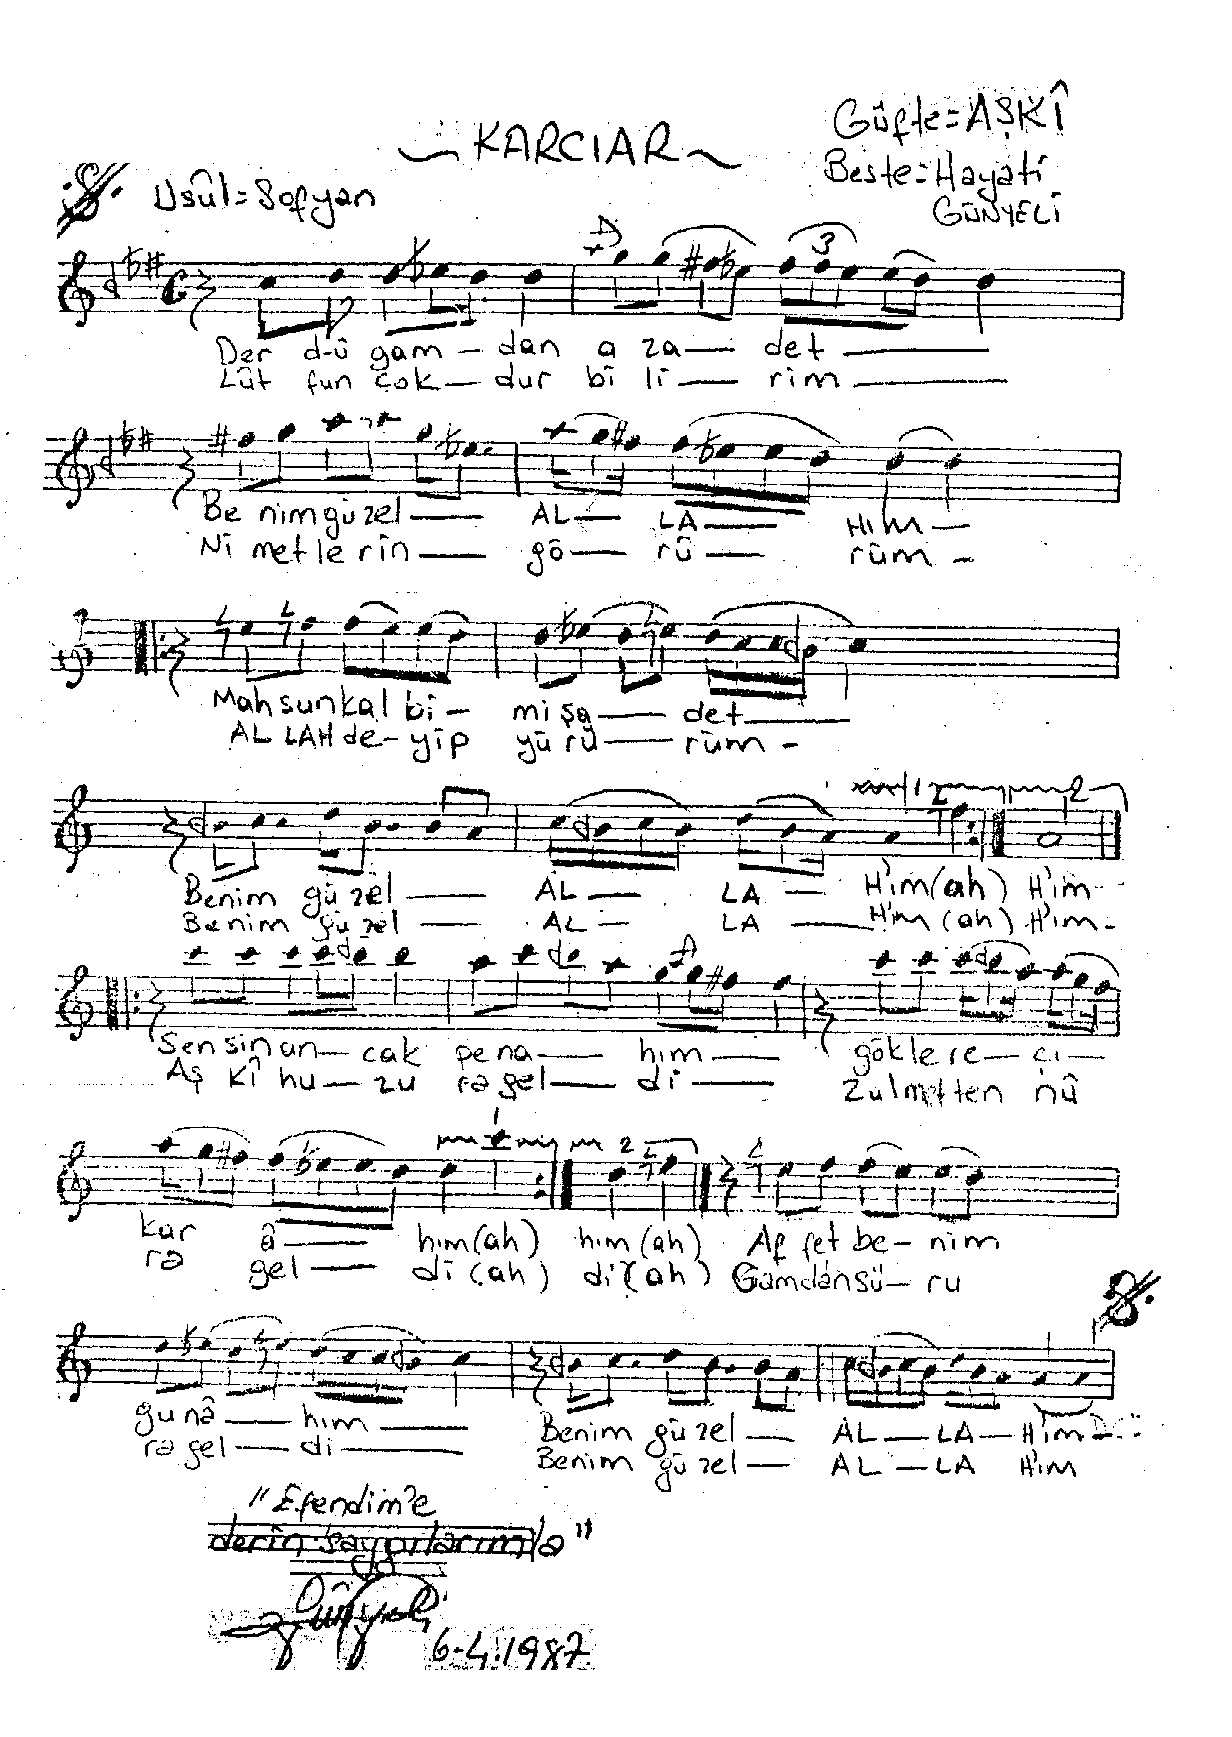 Güfte=AŞKÎ
~ KARCIAR ~
Beste=Hayati
GÜNYELİ
Usûl=Sofyan
3
Der d-û gam — dan a za — det —
Lût fun çok — dur bi li — rim —
Be nim güzel — AL — LA — HIM —
Ni met le rin — gö — rü — rüm -
Mah sun kal bi — mi şa — det —
AL LAH de - yip yü rü — rüm -
1 2
Benim güzel — AL — LA — H'im (ah) H'im -
Benim güzel — AL — LA — H'im (ah) H'im -
Sen sin an — cak pe na — hım — gökle re — çı —
Aş kî hu — zu ra gel — di — Zulmetten nû
1 2
kar â — hım (ah) hım (ah) Af fet be — nim
ra gel — di (ah) di (ah) Gamdan sü — ru
gu nâ — hım — Benim güzel — AL — LA — H'im
ra gel — di — Benim güzel — AL — LA H'im
"Efendim'e
derin saygılarımla"
Günyeli
6-4.1987